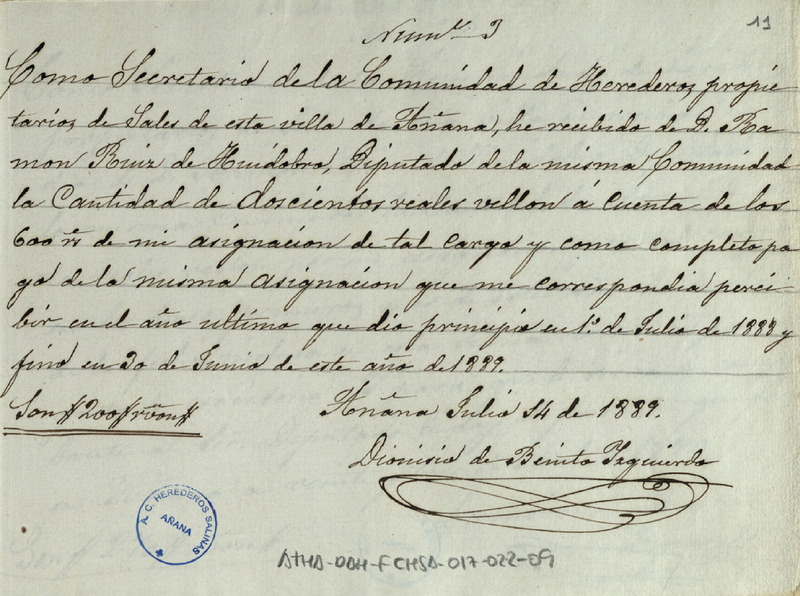 11
Num.º 3
Como Secretario de la Comunidad de Herederos propie-
tarios de Sales de esta villa de Añana, he recibido de D. Ra-
mon Ruiz de Huidobro, Diputado de la misma Comunidad
la Cantidad de doscientos reales vellon á cuenta de los
600 rs de mi asignacion de tal cargo y como completo pa-
go de la misma asignacion que me correspondia perci-
bir en el año ultimo que dio principio en 1.º de Julio de 1888 y
finó en 30 de Junio de este año de 1889.
Son # 200 # rs von #
Añana Julio 14 de 1889.
Dionisio de Benito Yzquierdo
A. C. HEREDEROS SALINAS
AÑANA
ATHA-DAH-FCHSA-017-022-09